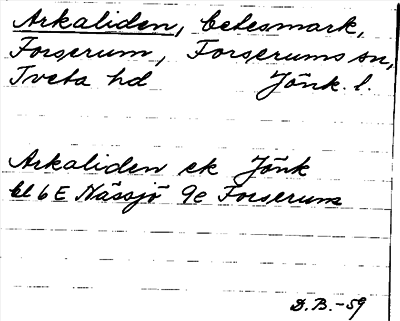 Arkaliden, betesmark,
Forserum, Forserums sn,
Tveta hd Jönk. l.
Arkaliden ek Jönk
bl 6E Nässjö 9e Forserum
D.B.-59